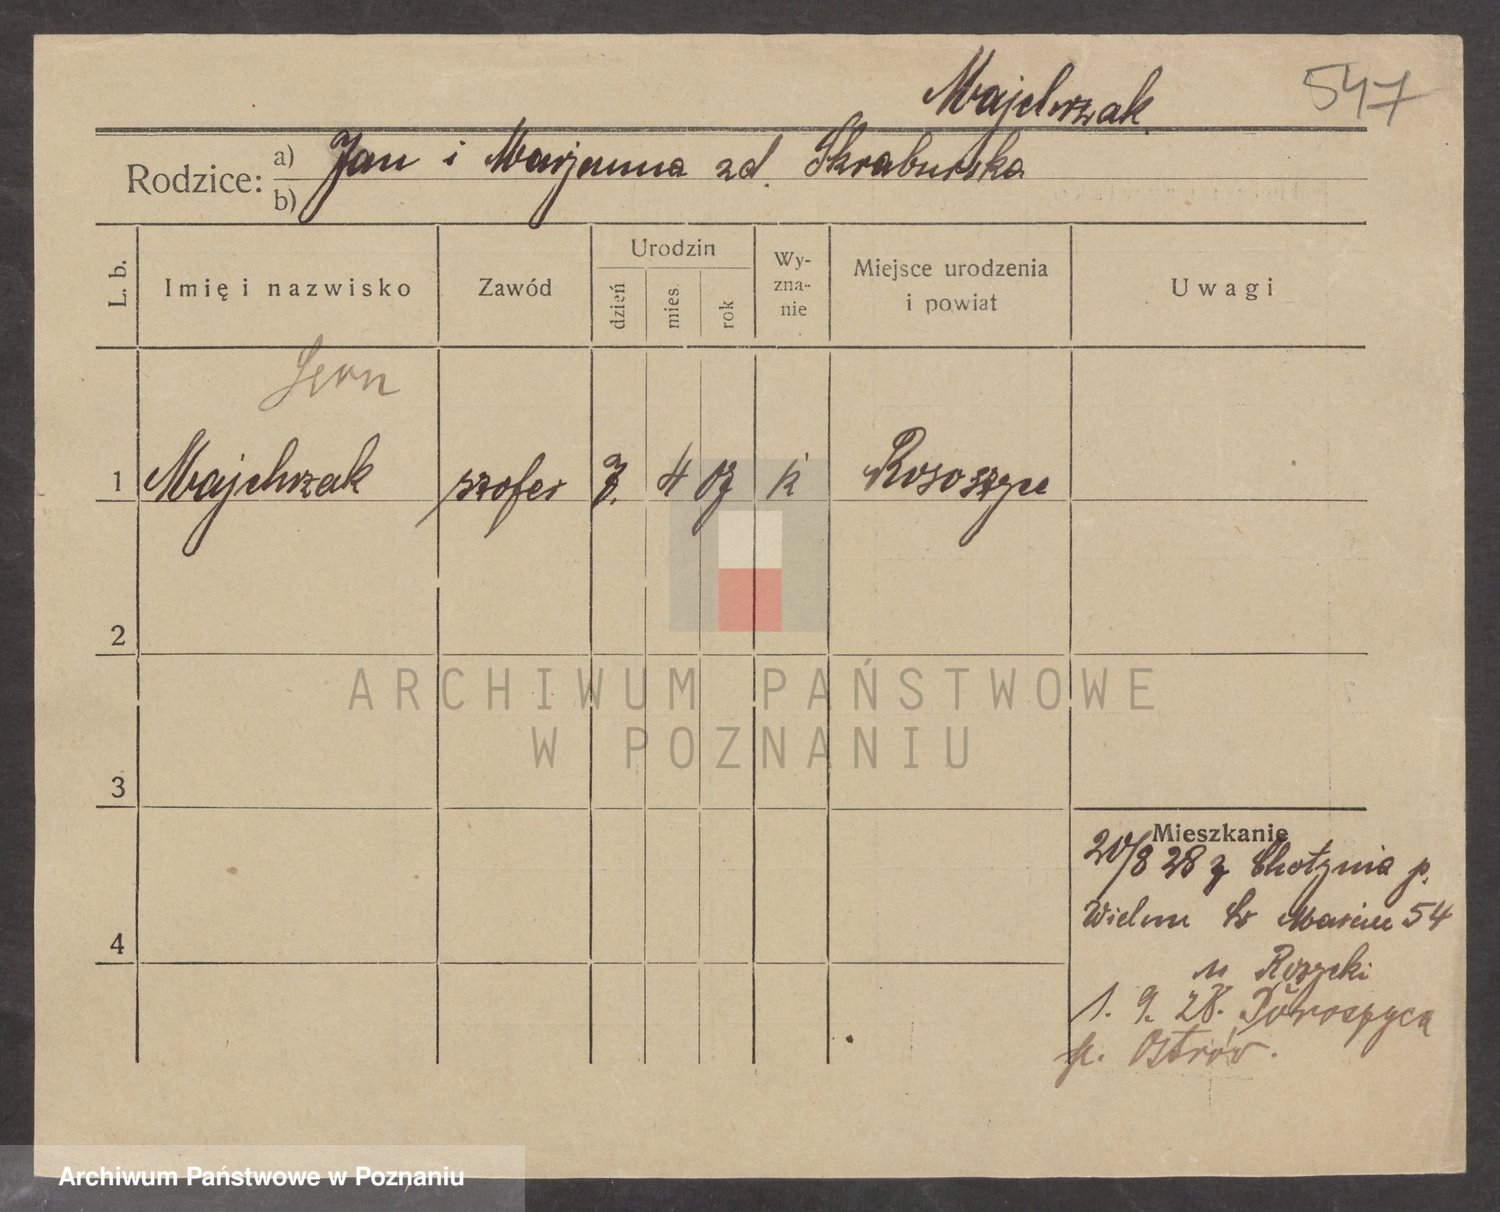 Majchrzak 547
Rodzice: a) Jan i Marjanna zd. Skraburska
b)
L. b. Imię i nazwisko Zawód Urodzin dzień mies. rok Wyznanie Miejsce urodzenia i powiat Uwagi
Leon
1 Majchrzak szofer 7. 4 07 k Rososzyce
2
ARCHIWUM PAŃSTWOWE
W POZNANIU
3
Mieszkanie
20/8 28 z p.
4
Wielun Św Marcin 54
u
1. 9. 28.
p. Ostrów.
Archiwum Państwowe w Poznaniu